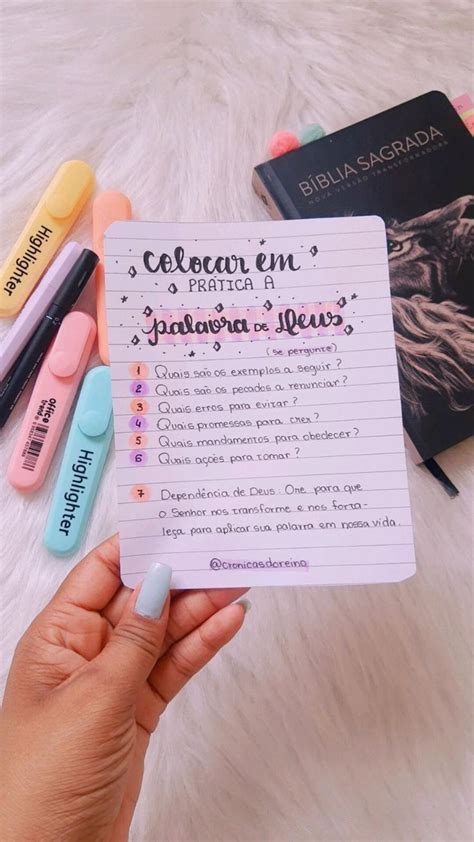 BÍBLIA SAGRADA
NOVA VERSÃO TRANSFORMADORA
Highlighter
office
trends
Highlighter
Colocar em
PRÁTICA A
palavra DE Deus
(se pergunte)
1 Quais são os exemplos a seguir?
2 Quais são os pecados a renunciar?
3 Quais erros para evitar?
4 Quais promessas para crer?
5 Quais mandamentos para obedecer?
6 Quais ações para tomar?
7 Dependência de Deus: Ore para que
o Senhor nos transforme e nos forta-
leça para aplicar sua palavra em nossa vida.
@cronicasdoreino